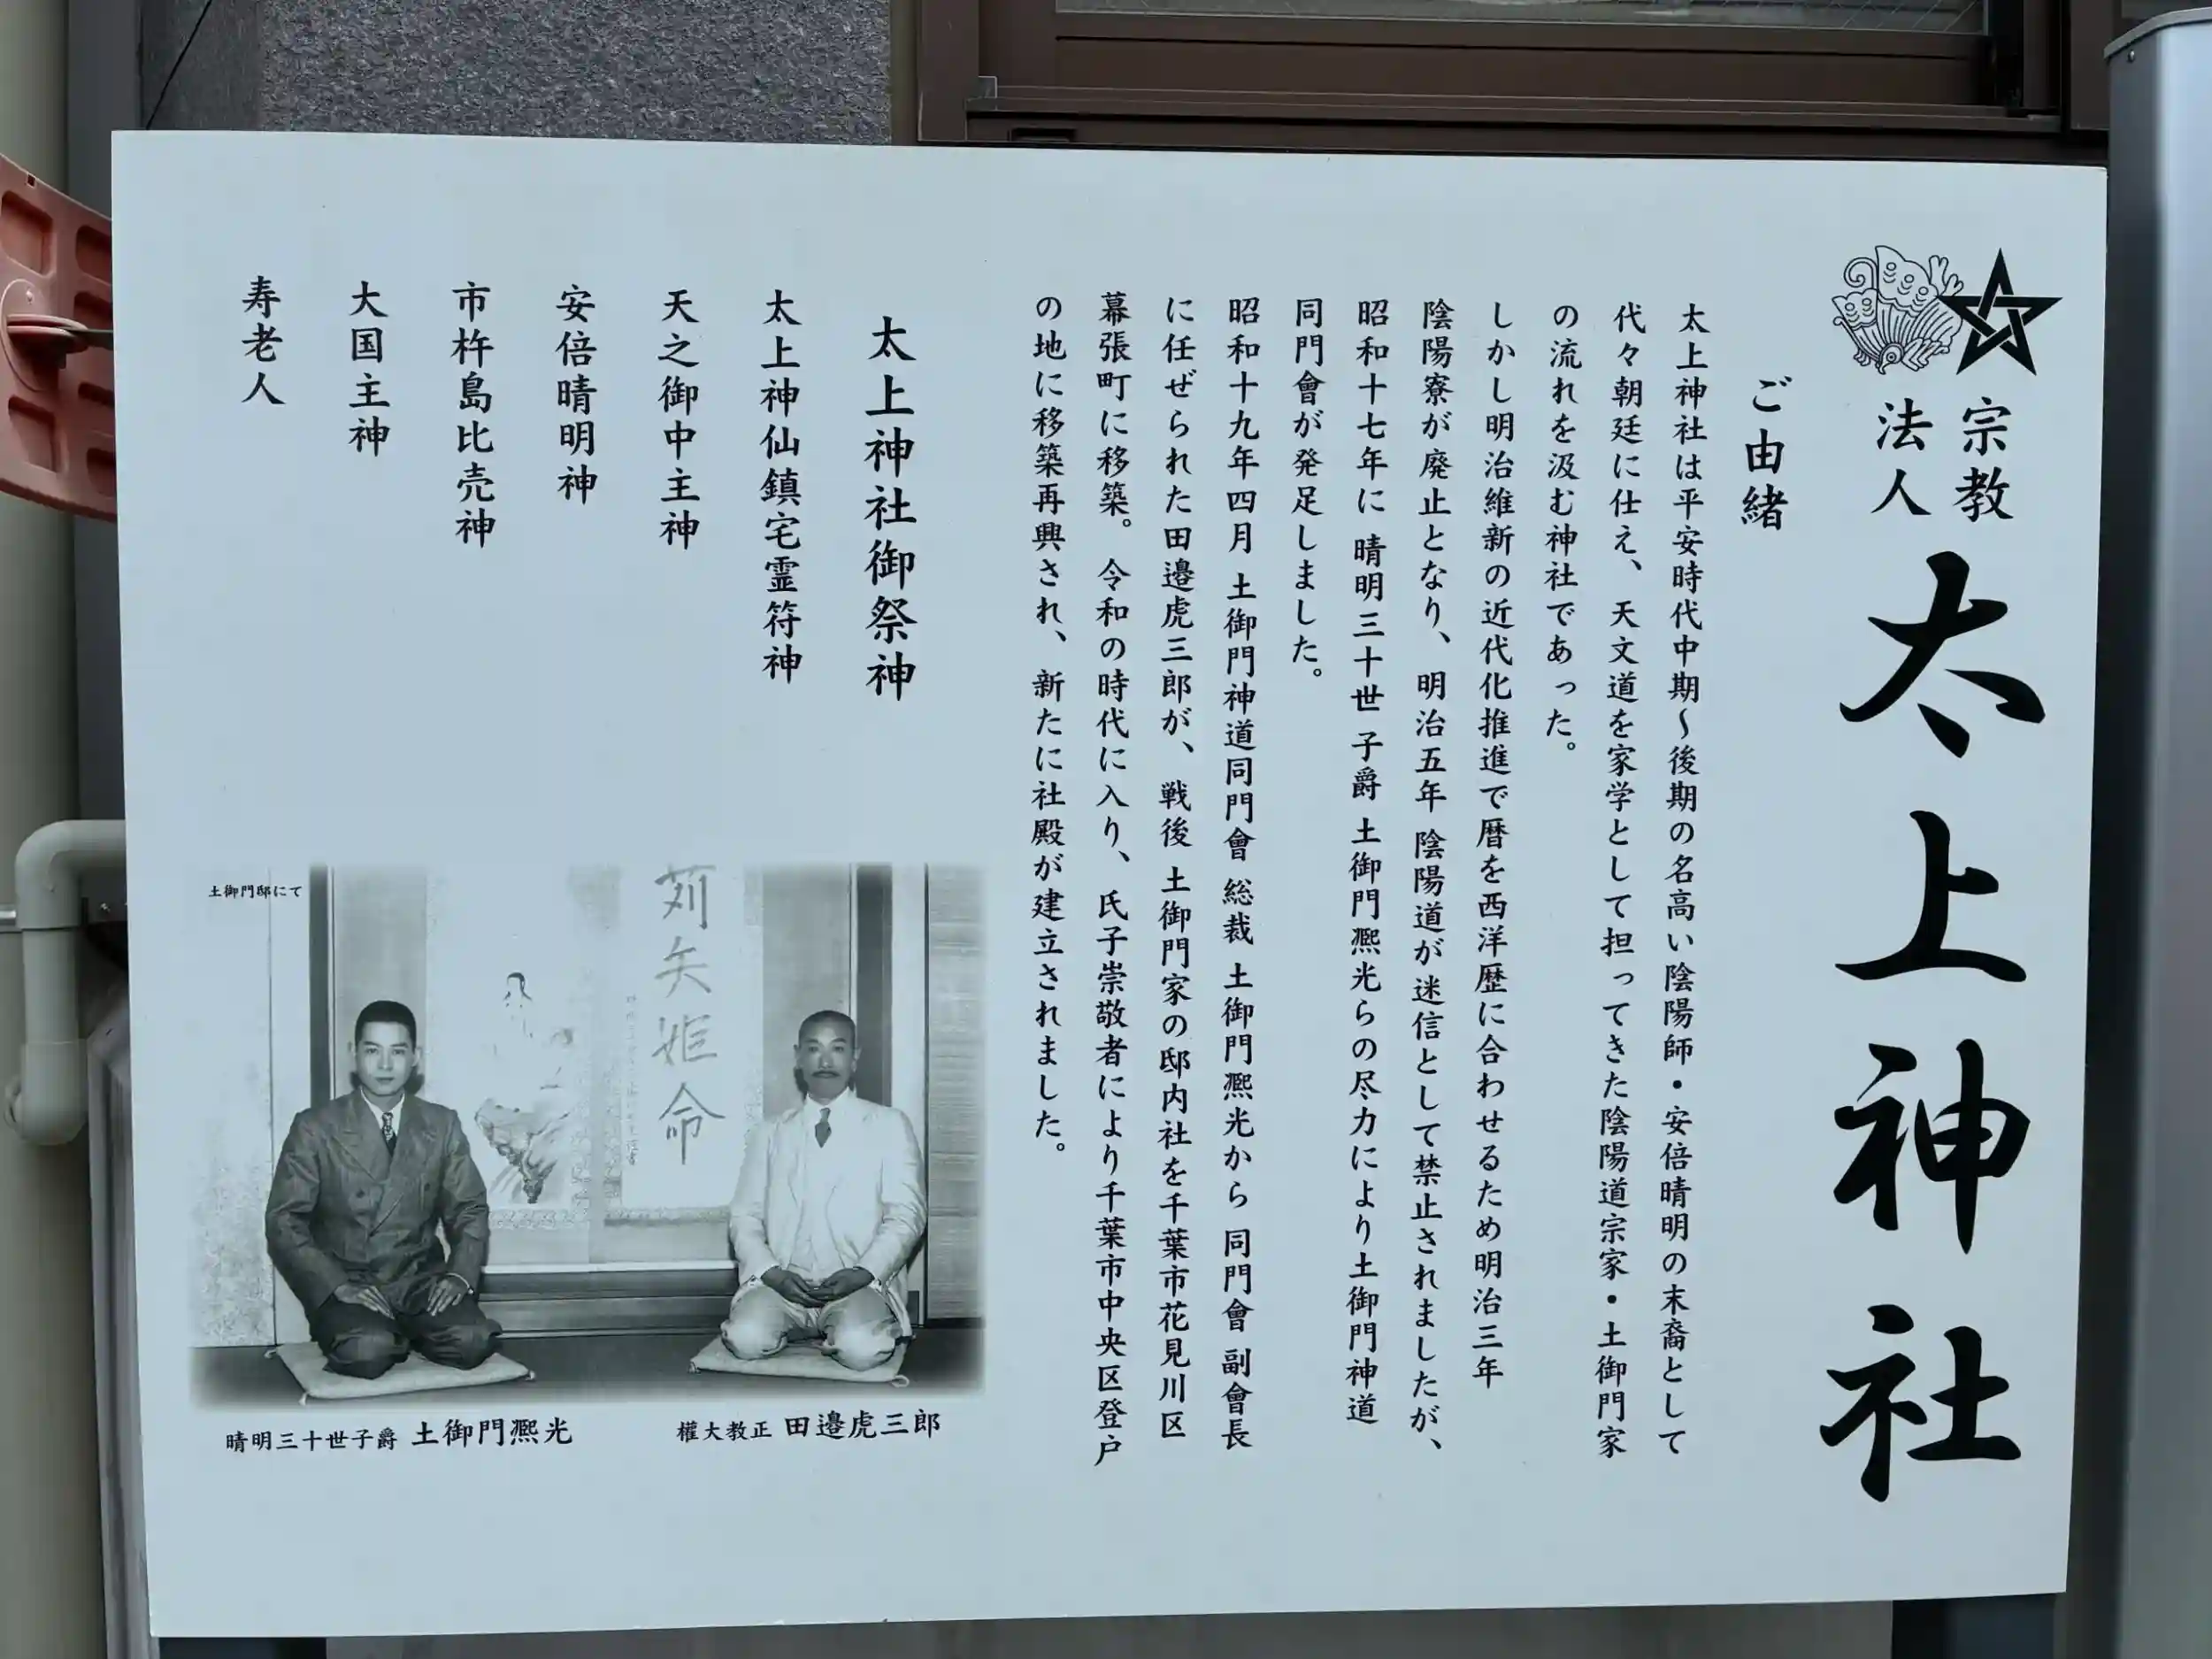 宗教
法人
太上神社
ご由緒
太上神社は平安時代中期〜後期の名高い陰陽師・安倍晴明の末裔として
代々朝廷に仕え、天文道を家学として担ってきた陰陽道宗家・土御門家
の流れを汲む神社であった。
しかし明治維新の近代化推進で暦を西洋歴に合わせるため明治三年
陰陽寮が廃止となり、明治五年 陰陽道が迷信として禁止されましたが、
昭和十七年に 晴明三十世 子爵 土御門凞光らの尽力により土御門神道
同門會が発足しました。
昭和十九年四月 土御門神道同門會 総裁 土御門凞光から 同門會 副會長
に任ぜられた田邉虎三郎が、戦後 土御門家の邸内社を千葉市花見川区
幕張町に移築。令和の時代に入り、氏子崇敬者により千葉市中央区登戸
の地に移築再興され、新たに社殿が建立されました。
太上神社御祭神
太上神仙鎮宅霊符神
天之御中主神
安倍晴明神
市杵島比売神
大国主神
寿老人
土御門邸にて
權大教正 田邉虎三郎
晴明三十世子爵 土御門凞光